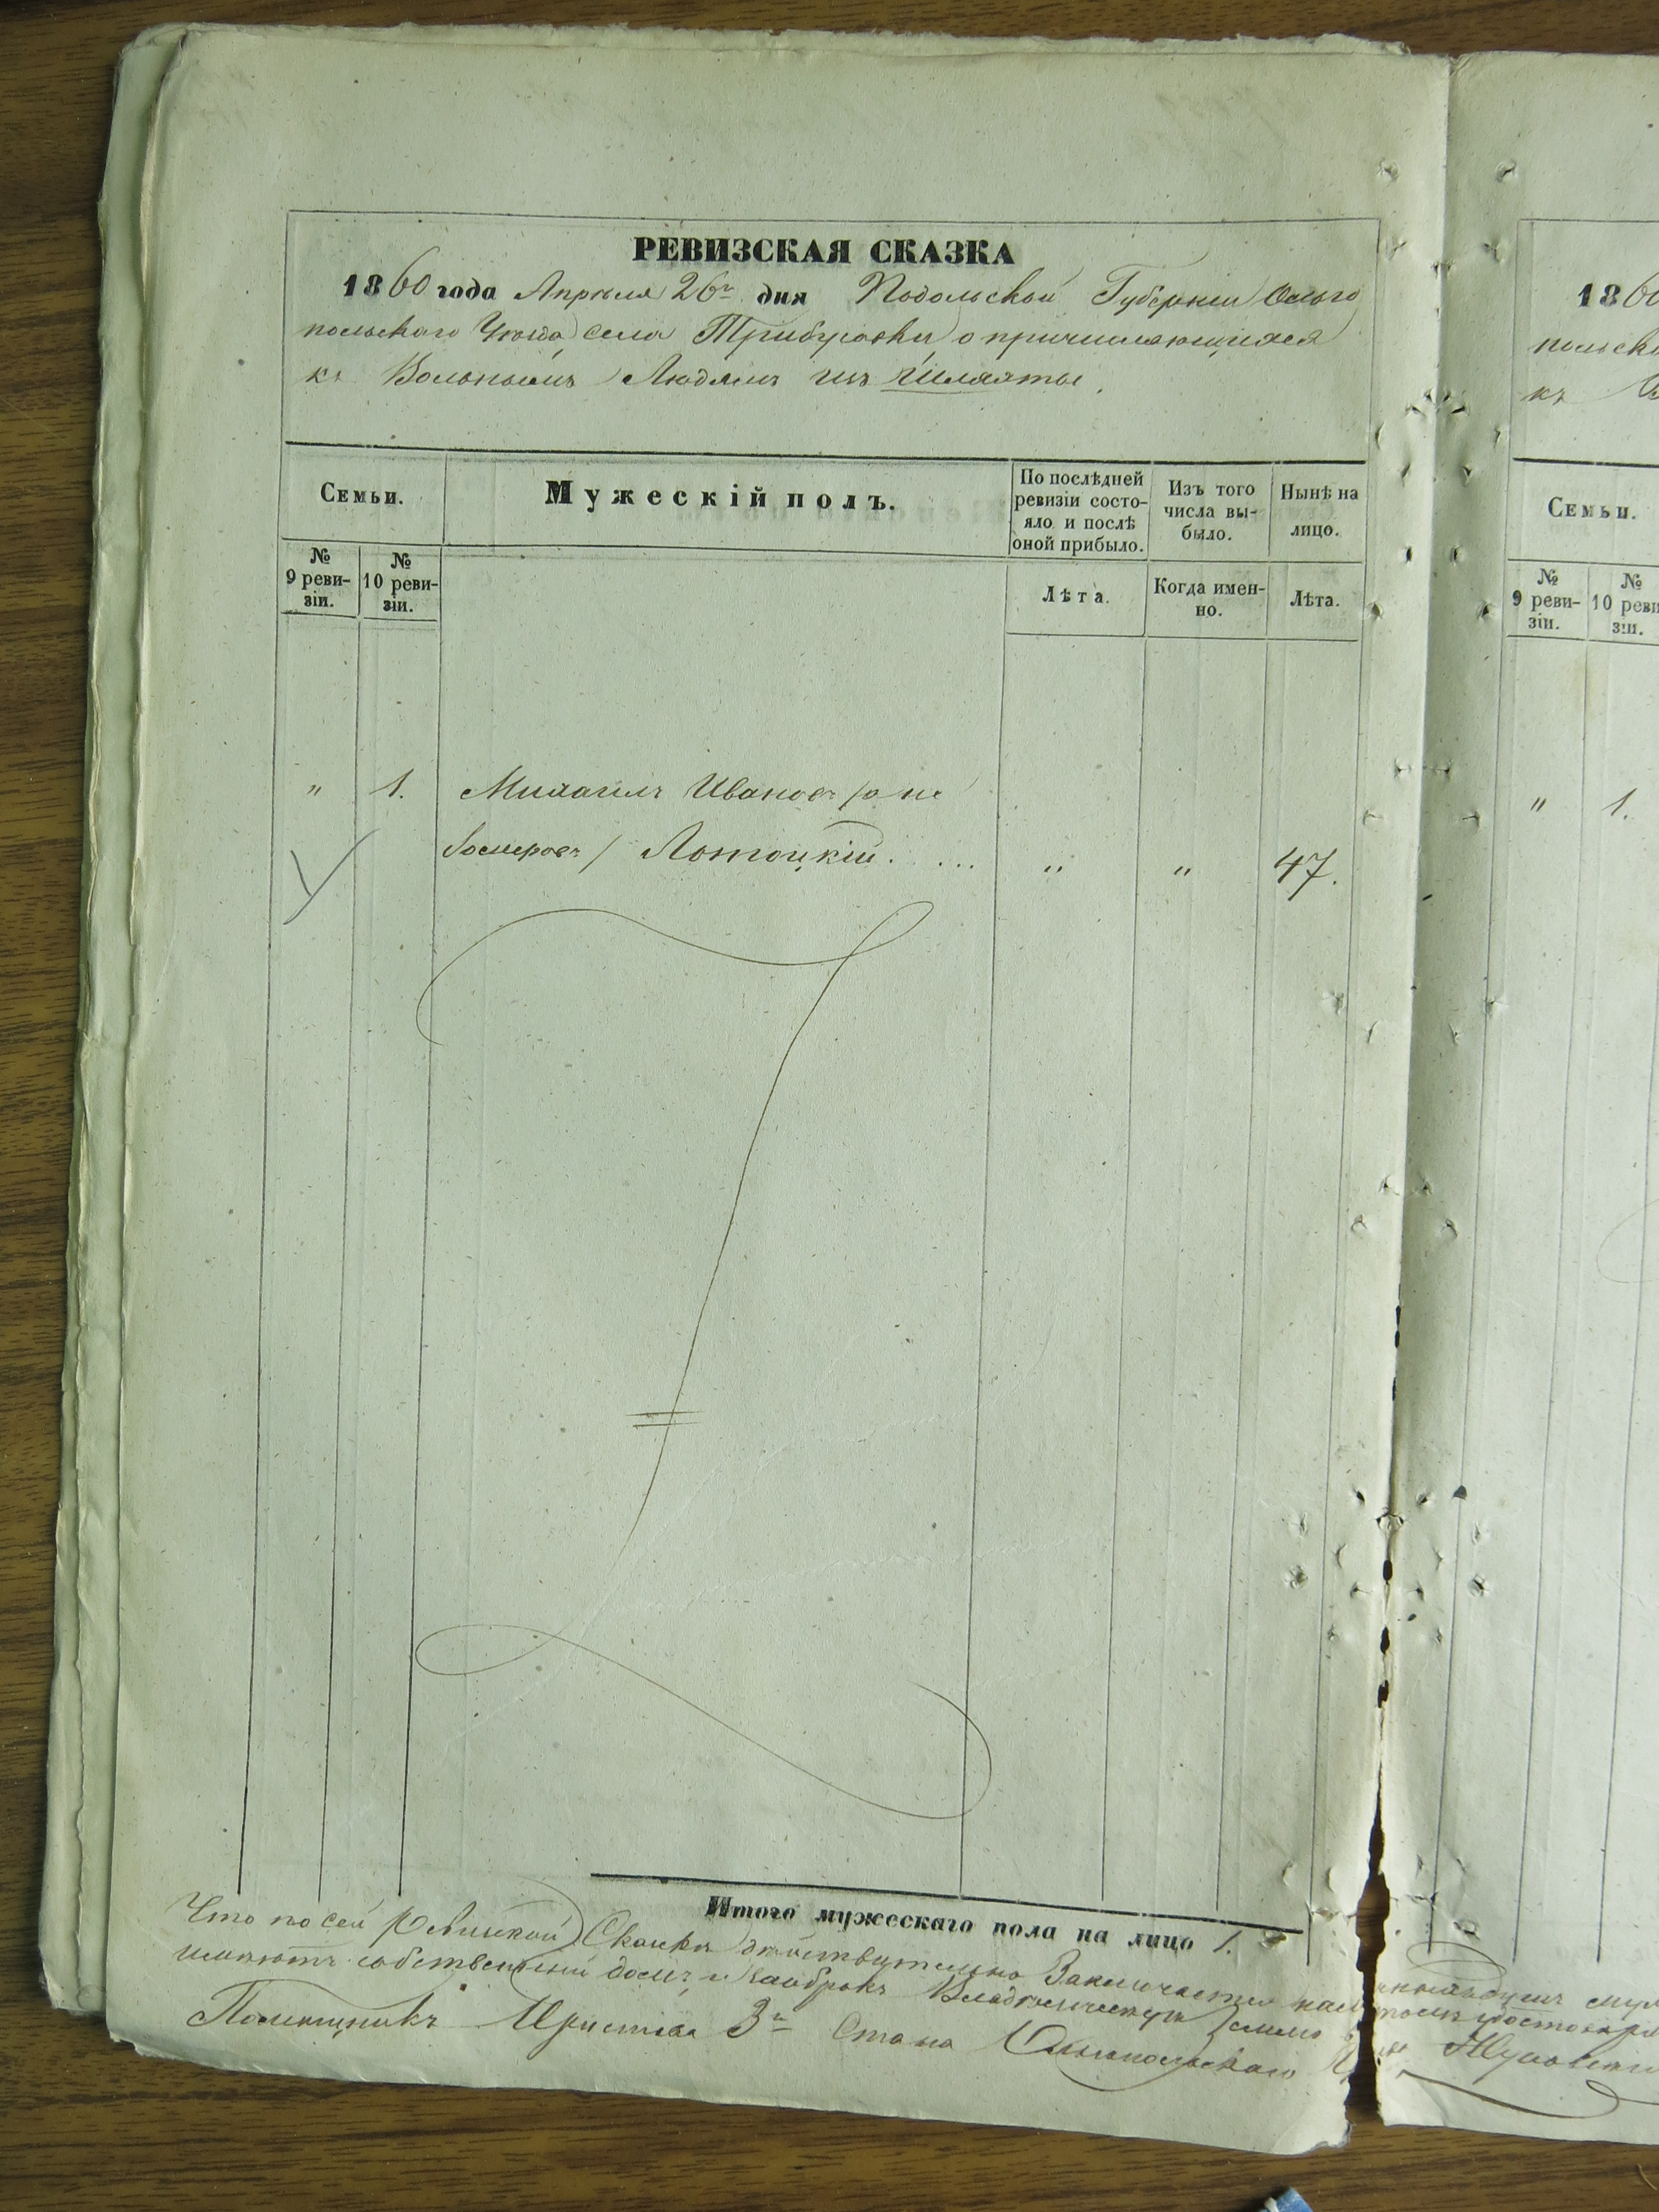 РЕВИЗСКАЯ СКАЗКА
1860 года Апреля 26го дня Подольской Губернии Ольго
польского Уезда села Трибусовки, о причисляющихся
къ Вольнымъ Людямъ изъ Шляхты.
Семьи.
Мужескій полъ.
По послѣдней ревизіи состо-
яло и послѣ
оной прибыло.
Изъ того
числа вы-
было.
Нынѣ на
лицо.
№
9 реви-
зіи.
№
10 реви-
зіи.
Лѣта.
Когда имен-
но.
Лѣта.
" 1. Михаилъ Ивановъ /а не
/ Лотоцкій. ... " " 47.
Итого мужескаго пола на лицо 1.
Что по сей Ревизской Сказке действительно Заключается
имеютъ собственный домъ и
Помощникъ Пристава 3го Стана Ольгопольскаго
1860
польска
къ В
Семьи.
№
9 реви-
зіи.
№
10 реви
зіи.
" 1.